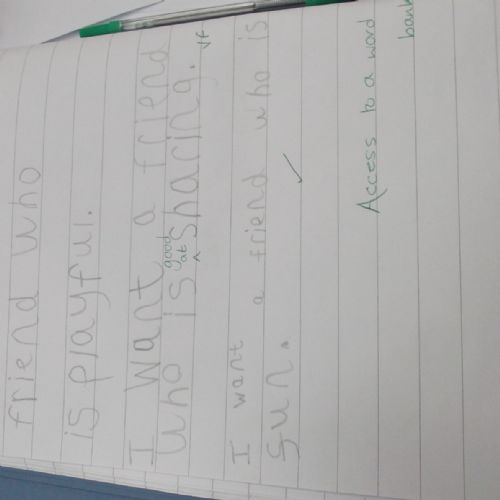 friend who
is playful.
I want a friend
who is good at sharing. VF
I want a friend who is
fun.
Access to a word
bank